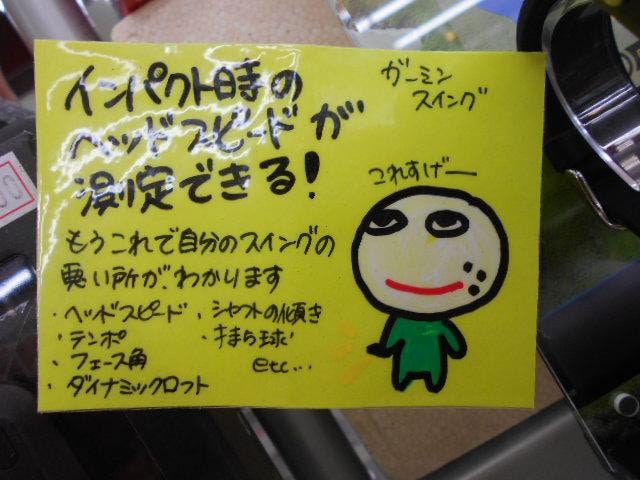 インパクト時の
ヘッドスピードが
測定できる!
ガーミン
スイング
これすげー
もうこれで自分のスイングの
悪い所が、わかります
・ヘッドスピード
・テンポ
・フェース角
・ダイナミックロフト
・シャフトの傾き
・打ち球
etc...